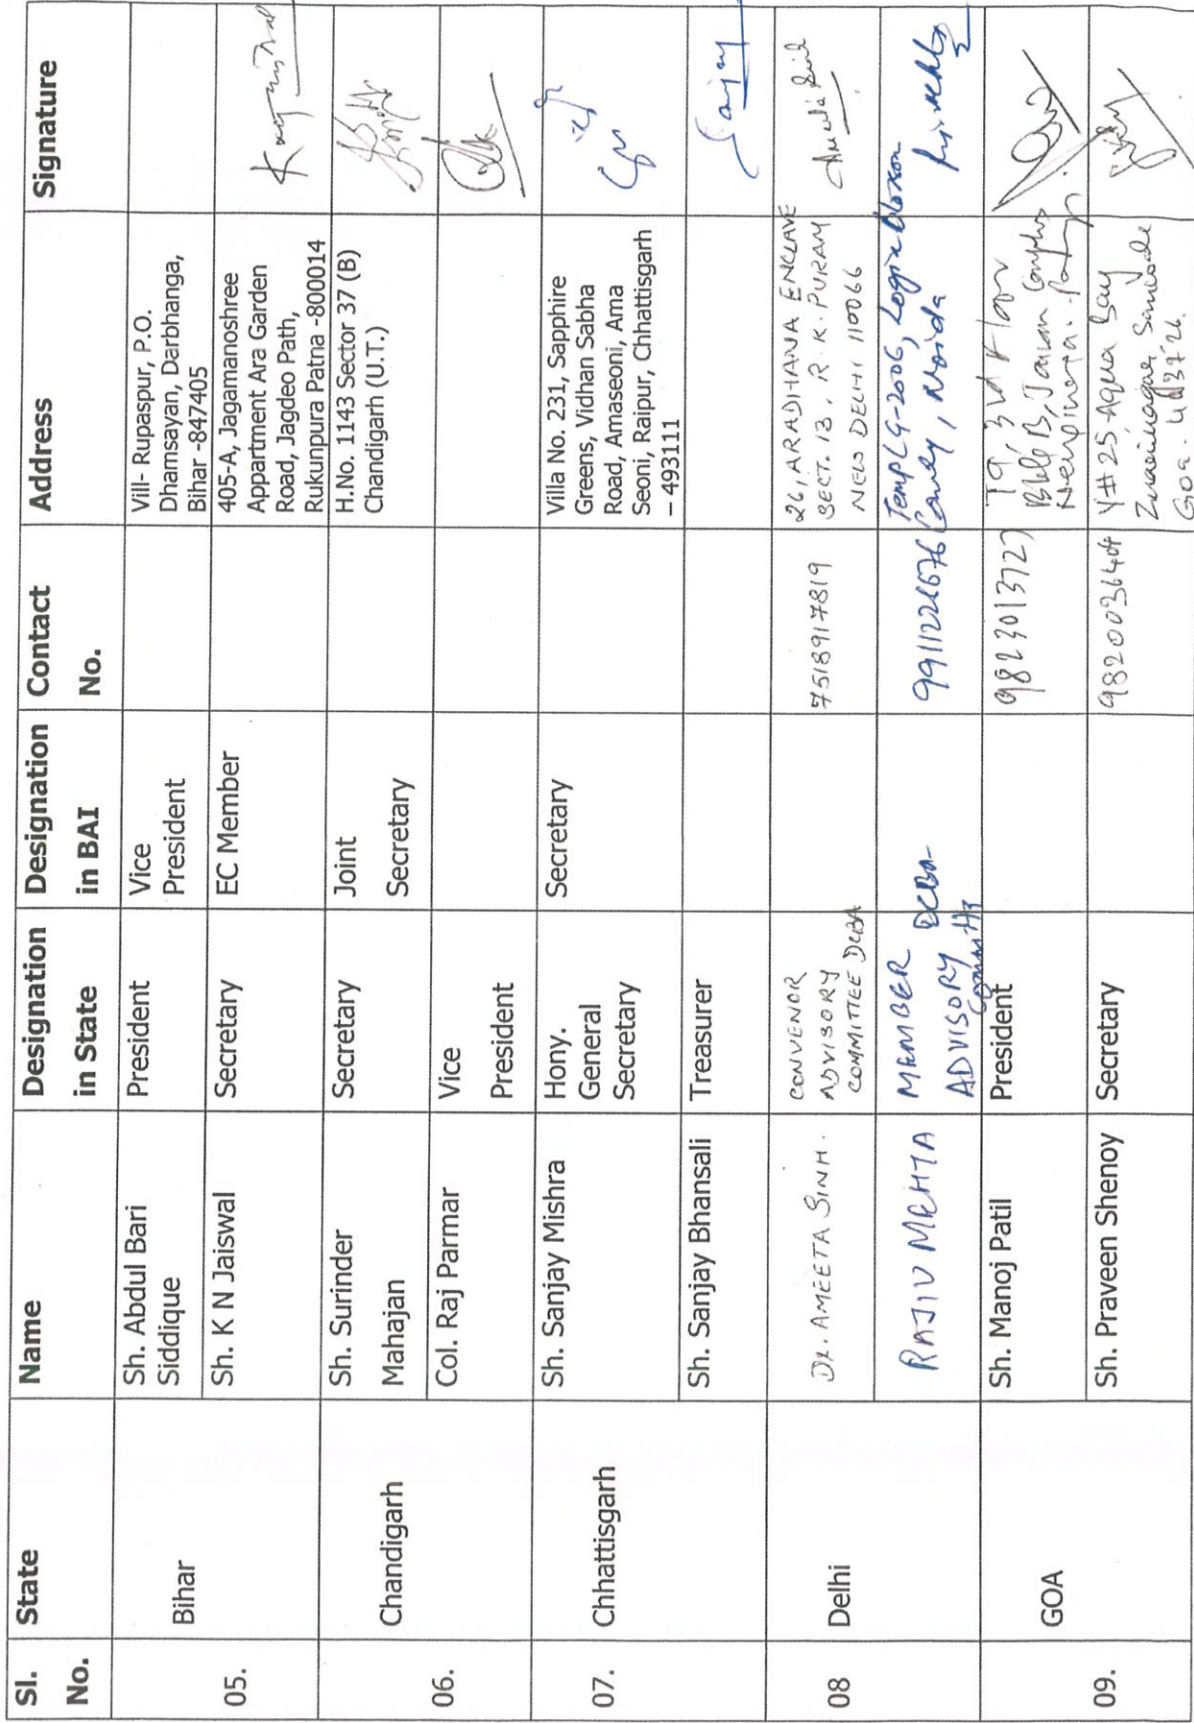 Sl. No.
State
Name
Designation in State
Designation in BAI
Contact No.
Address
Signature
05.
Bihar
Sh. Abdul Bari
Siddique
President
Vice
President
Vill- Rupaspur, P.O.
Dhamsayan, Darbhanga,
Bihar -847405
Sh. K N Jaiswal
Secretary
EC Member
405-A, Jagamanoshree
Appartment Ara Garden
Road, Jagdeo Path,
Rukunpura Patna -800014
06.
Chandigarh
Sh. Surinder
Mahajan
Secretary
Joint
Secretary
H.No. 1143 Sector 37 (B)
Chandigarh (U.T.)
Col. Raj Parmar
Vice
President
07.
Chhattisgarh
Sh. Sanjay Mishra
Hony.
General
Secretary
Secretary
Villa No. 231, Sapphire
Greens, Vidhan Sabha
Road, Amaseoni, Ama
Seoni, Raipur, Chhattisgarh
– 493111
Sh. Sanjay Bhansali
Treasurer
Sanjay
08
Delhi
Dr. AMEETA SINH.
CONVENOR
ADVISORY
COMMITTEE DCBA
7518917819
26, ARADHANA ENCLAVE
SECT. 13, R.K. PURAM
NEW DELHI 110066
RAJIV MEHTA
MEMBER DCBA-
ADVISORY
9911226676
Noida
09.
GOA
Sh. Manoj Patil
President
9823013727
T9, 3rd Floor
Sh. Praveen Shenoy
Secretary
9820036404
Y#25, Aqua Bay
Zuarinagar Sancoale
Goa. 403726.